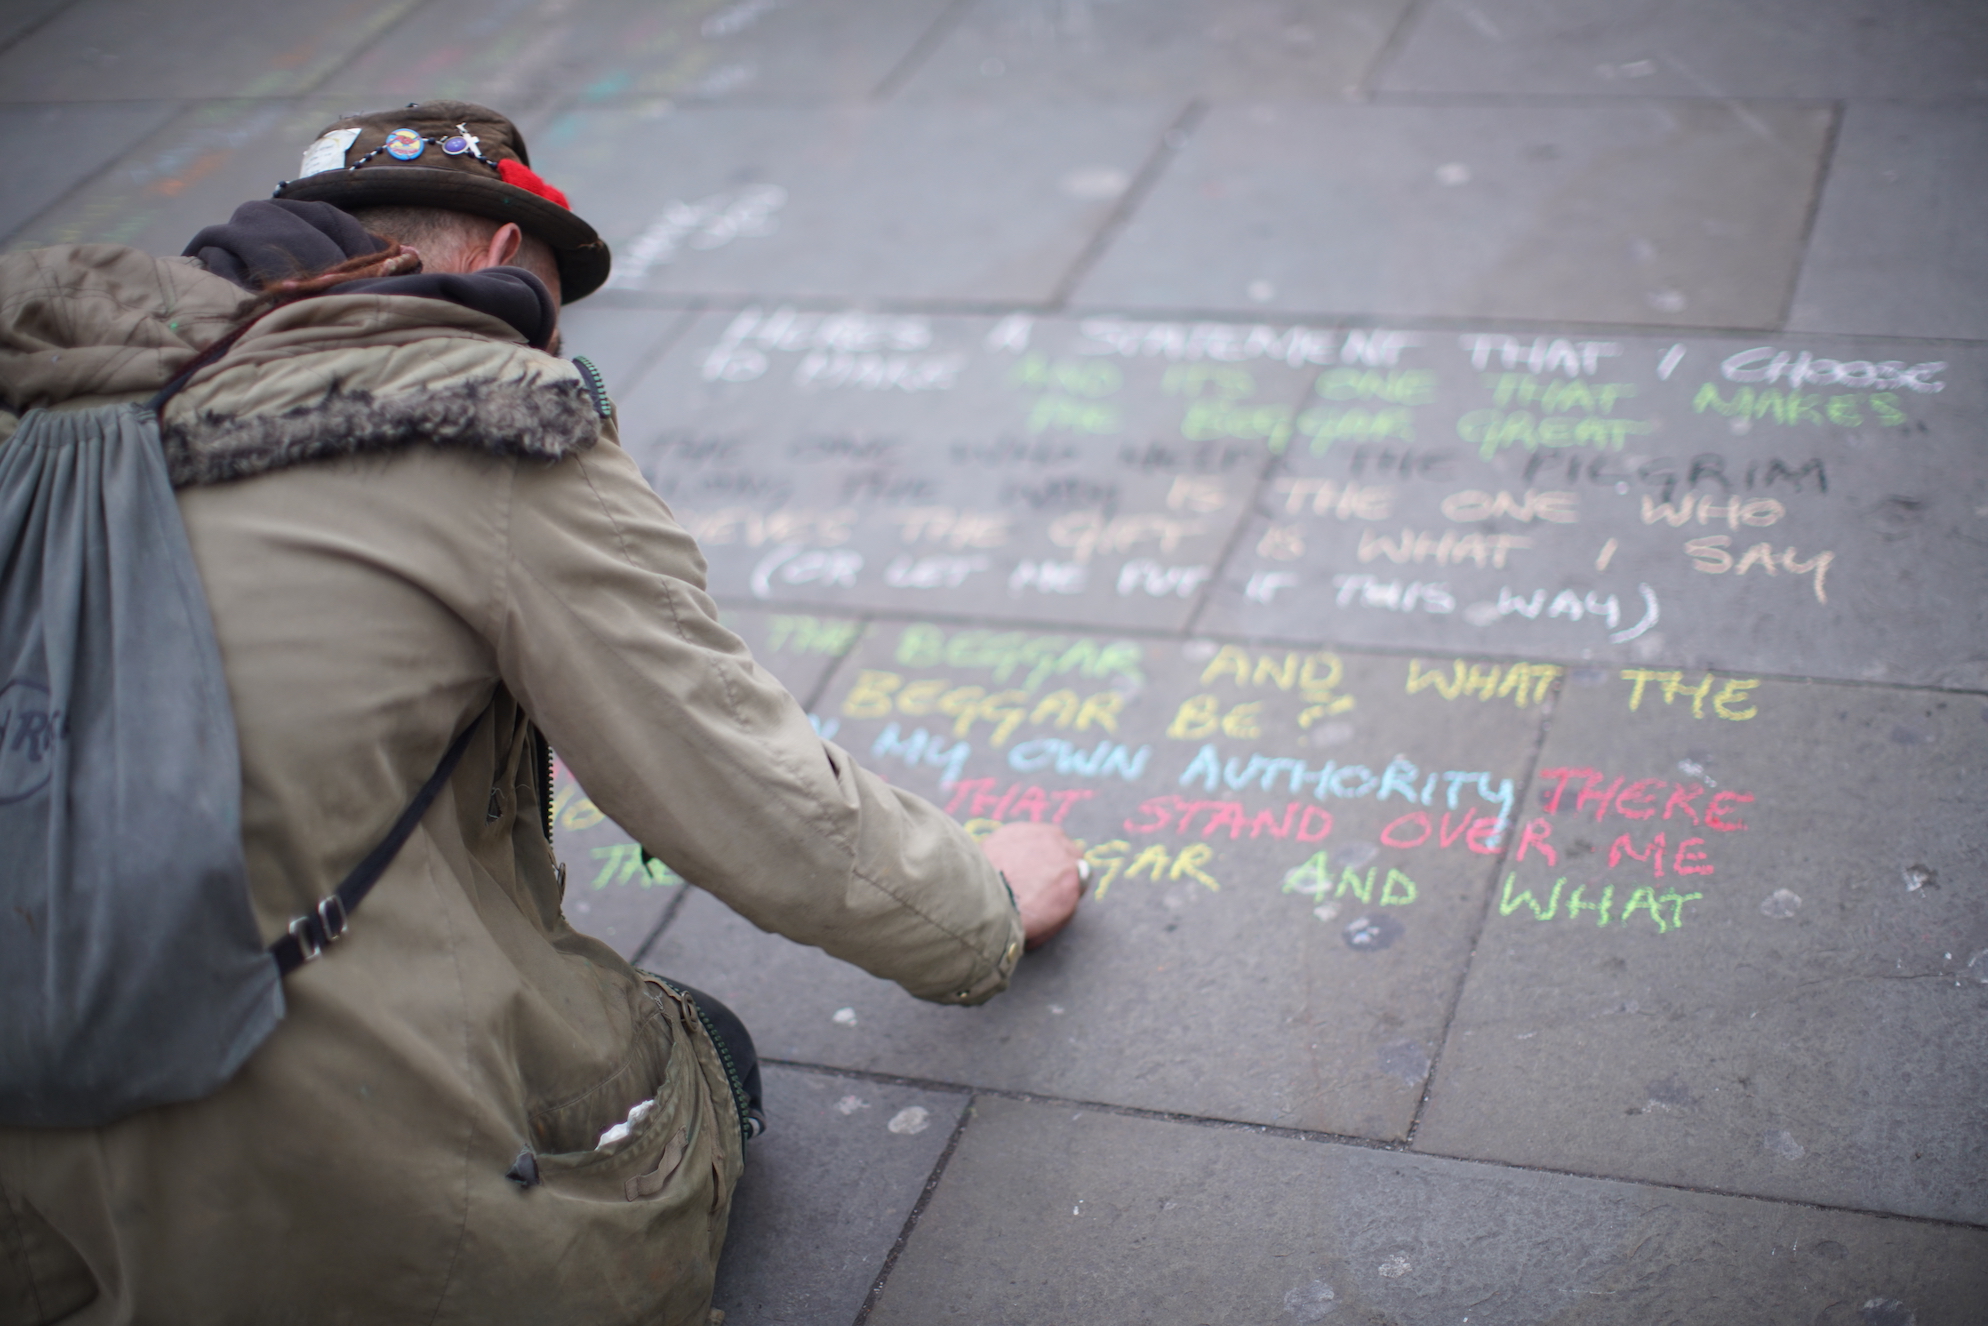 HERES A STATEMENT THAT I CHOOSE
TO MAKE AND ITS ONE THAT MAKES
THE BEGGAR GREAT
THE ONE WHO HELPS THE PILGRIM
ALONG THE WAY IS THE ONE WHO
THE GIFT IS WHAT I SAY
(OR LET ME PUT IT THIS WAY)
THE BEGGAR AND WHAT THE
BEGGAR BE?
MY OWN AUTHORITY THERE
THAT STAND OVER ME
THE GAR AND WHAT